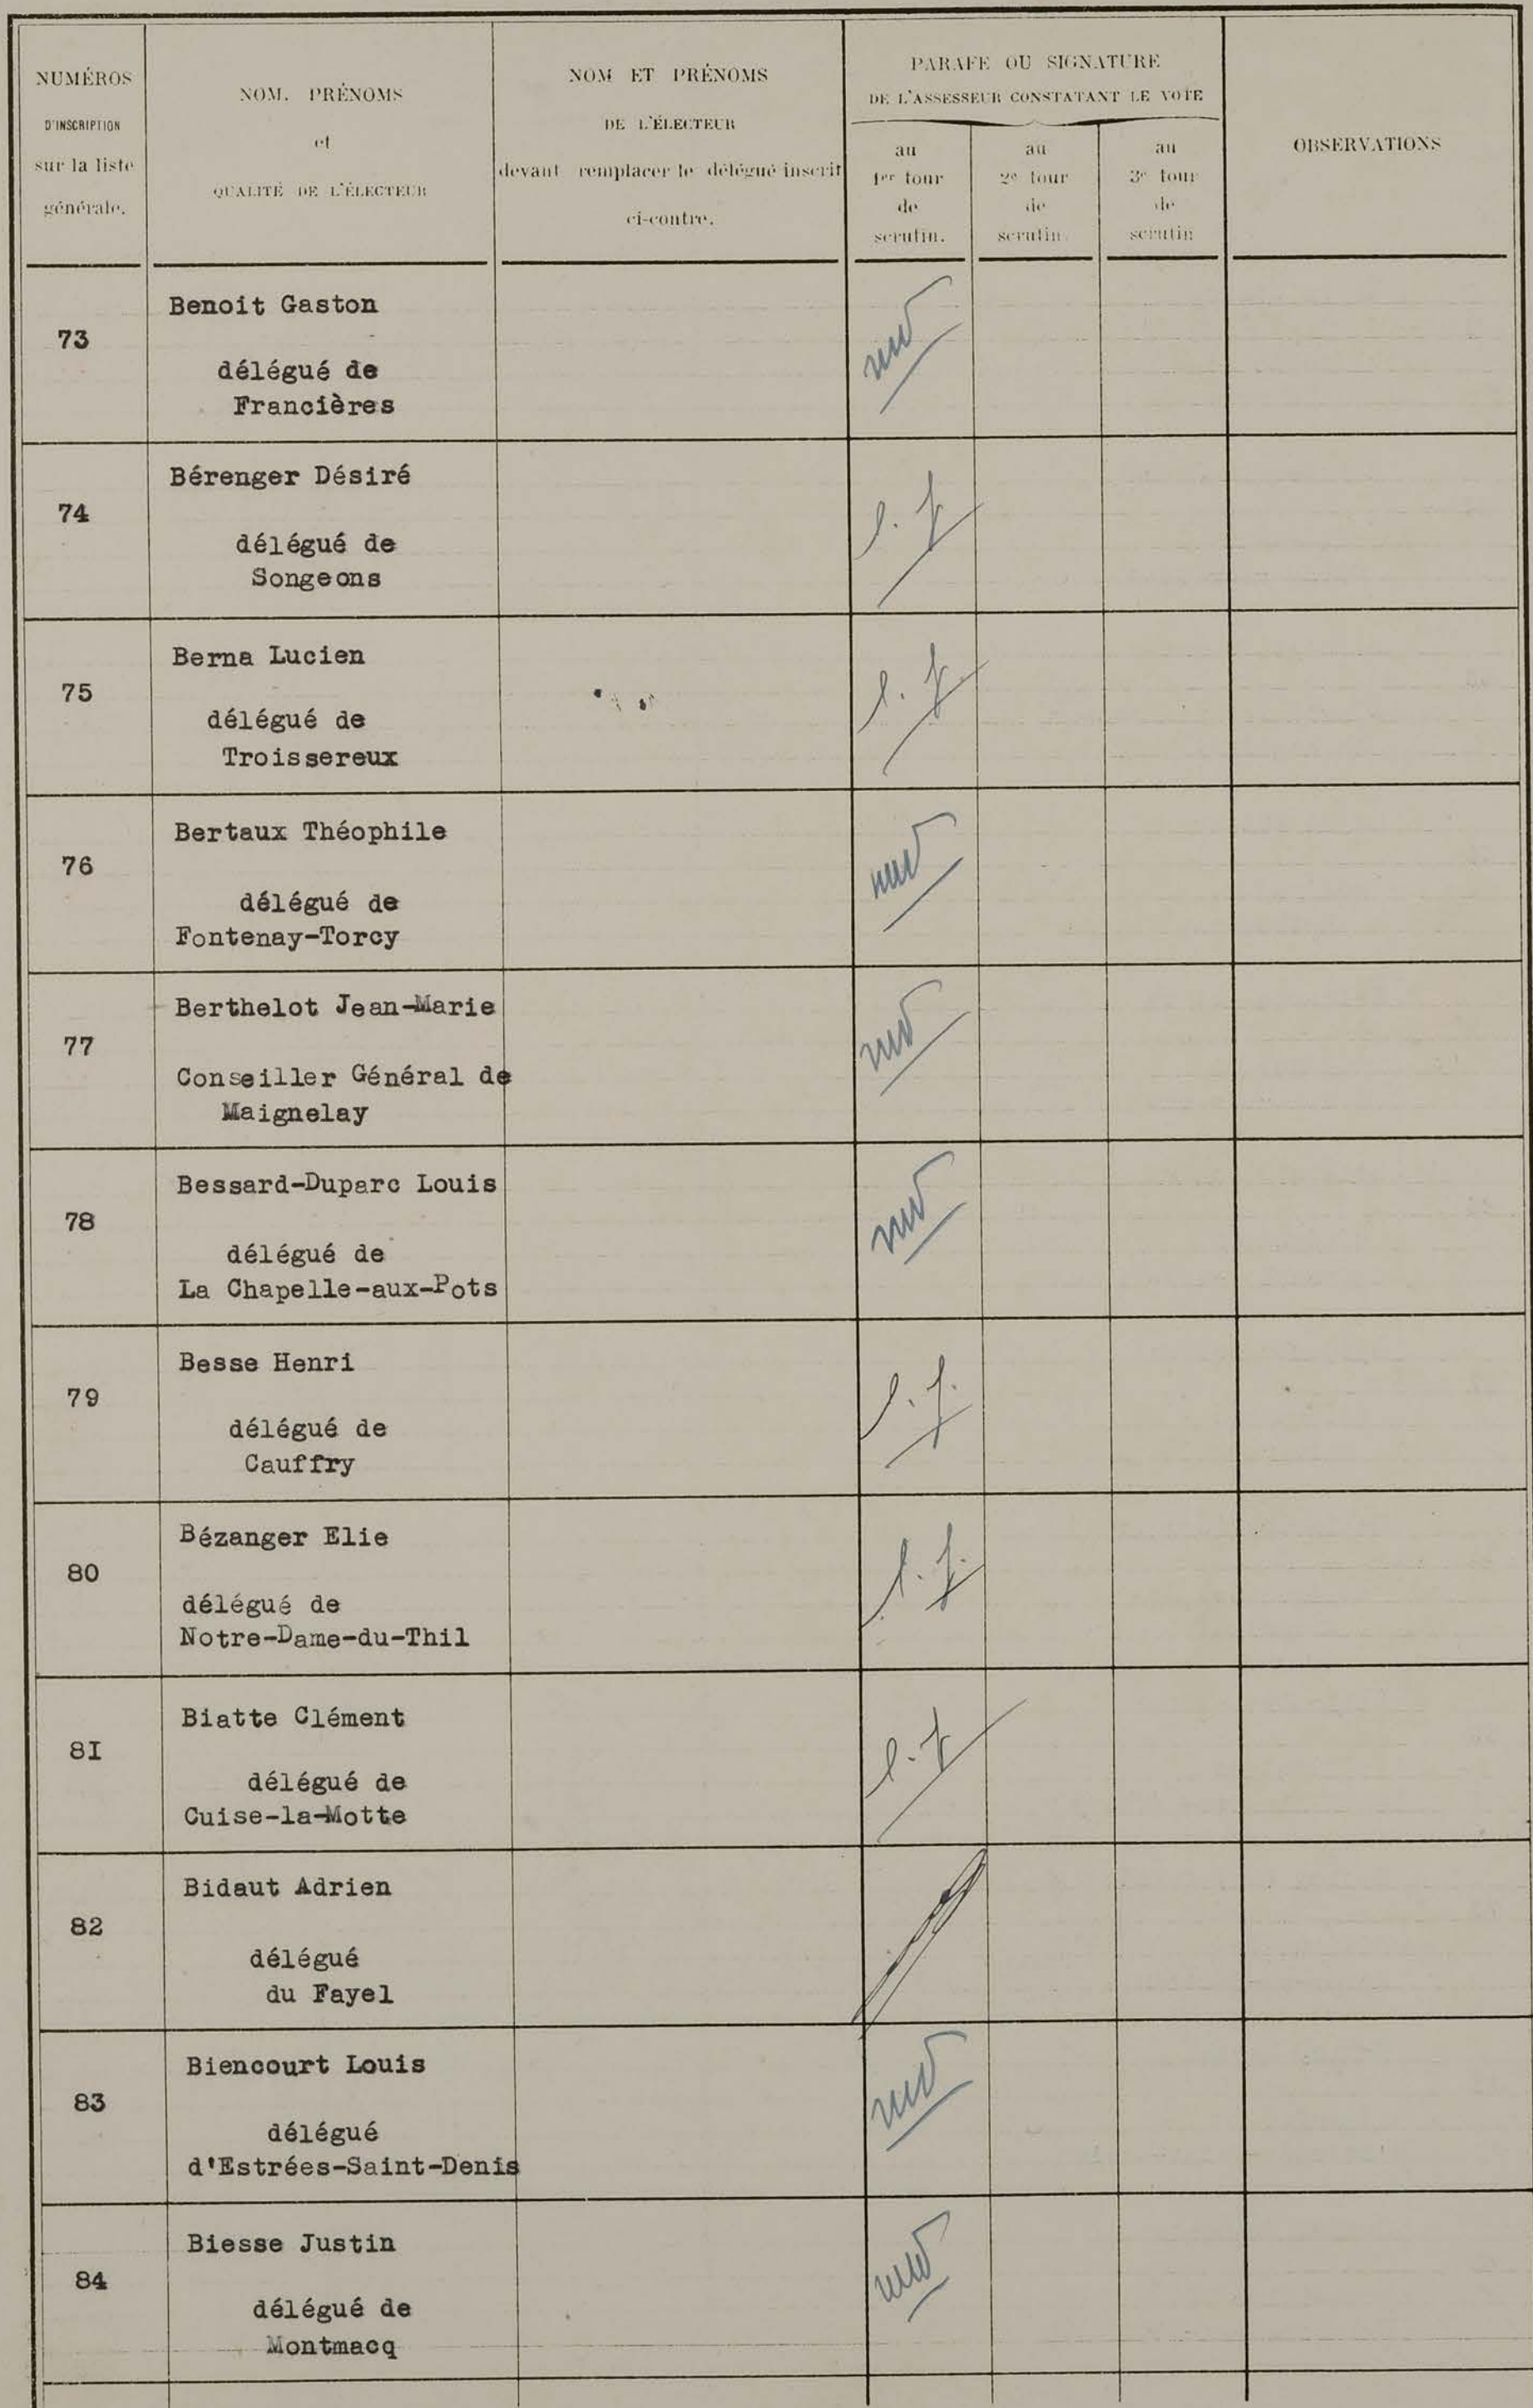 NUMÉROS
D'INSCRIPTION
sur la liste
générale.
NOM. PRÉNOMS
et
QUALITÉ DE L'ÉLECTEUR
NOM ET PRÉNOMS
DE L'ÉLECTEUR
devant remplacer le délégué inscrit
ci-contre.
PARAFE OU SIGNATURE
DE L'ASSESSEUR CONSTATANT LE VOTE
au
1er tour
de
scrutin.
au
2e tour
de
scrutin.
au
3e tour
de
scrutin
OBSERVATIONS
73
Benoit Gaston
délégué de
Francières
74
Bérenger Désiré
délégué de
Songeons
75
Berna Lucien
délégué de
Troissereux
76
Bertaux Théophile
délégué de
Fontenay-Torcy
77
Berthelot Jean-Marie
Conseiller Général de
Maignelay
78
Bessard-Duparc Louis
délégué de
La Chapelle-aux-Pots
79
Besse Henri
délégué de
Cauffry
80
Bézanger Elie
délégué de
Notre-Dame-du-Thil
8I
Biatte Clément
délégué de
Cuise-la-Motte
82
Bidaut Adrien
délégué
du Fayel
83
Biencourt Louis
délégué
d'Estrées-Saint-Denis
84
Biesse Justin
délégué de
Montmacq